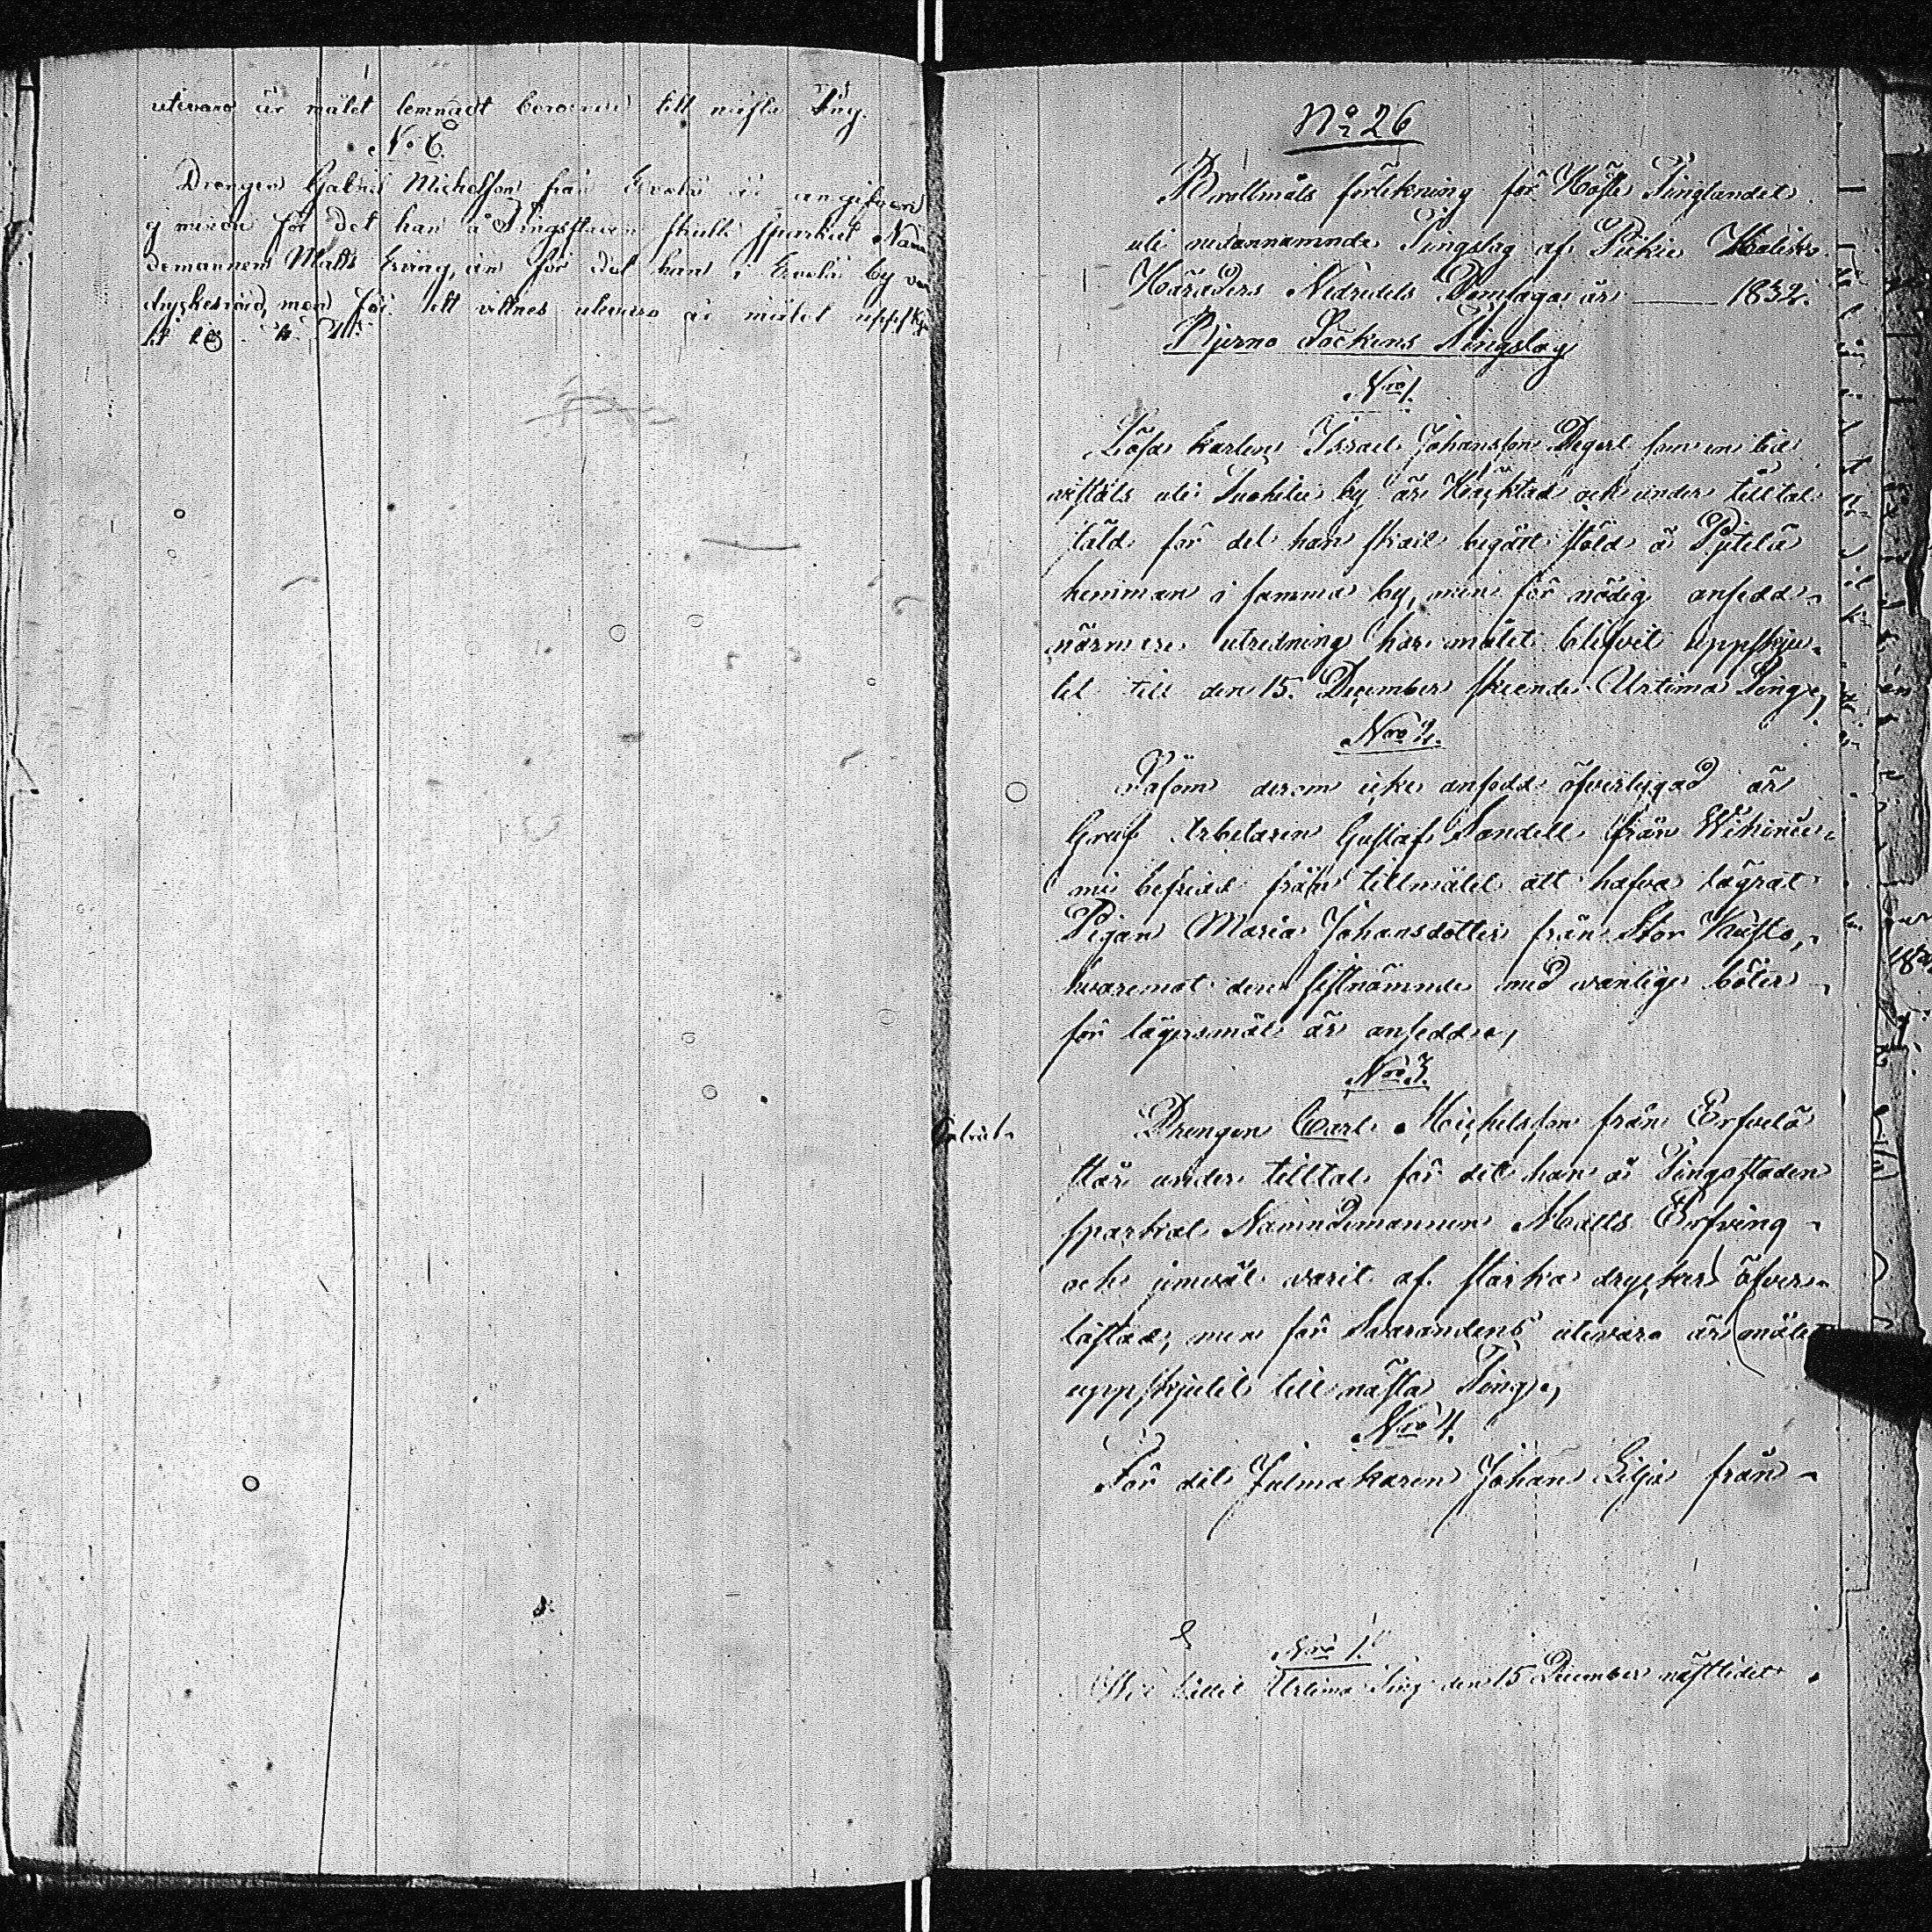 utevaro är målet lemnadt beroende till nästa Ting.
No 6.
Drengen Gabriel Michelsson från är angifven
för det han å Tingsstaden skulle sparkat Näm¬
demannen Matts Erving, än för det han i by
men för ett vittnes utevaro är målet uppskju¬
No 26
Brottmåls förtekning för Höste Tinglandet
uti nedannämnde Tingslag af Pikie Halikko
Häraders Nedredels Domsaga år 1832.
Bjerno Sockens Tingslag
Nro 1.
Löse karlen Israel Johansson Degert som en tid
vistats uti by är Häcktad och under tilltal
stäld för det han skall begått stöld å Pytelä
hemman i samma by, men för nödig ansedd
närmere utredning har målet blifvit uppskju¬
tet till den 15. December skeende Urtima Ting,
Nro 2.
Såsom derom icke ansedd öfvertygad är
Gruf Arbetaren Gustaf Sandell från
mi befriad från tillmälet att hafva lägrat
Pigan Maria Johansdotter från Stor
hvaremot den sistnämnde med vanlige böter
för lägersmål är ansedd,
Nro 3.
Drengen Carl Michelsson från Erfvelä
står under tilltal för det han å Tingsstaden
sparkat Nämndemannen Matts Erfving
och jemväl varit af starka drycker öfver¬
lastad, men för Svarandens utevaro är målet
uppskjutet till nästa Ting,
Nro 4.
För det Julmakaren Johan Lilja från
Nro 1.
Urtima Ting den 15 December nästlidet